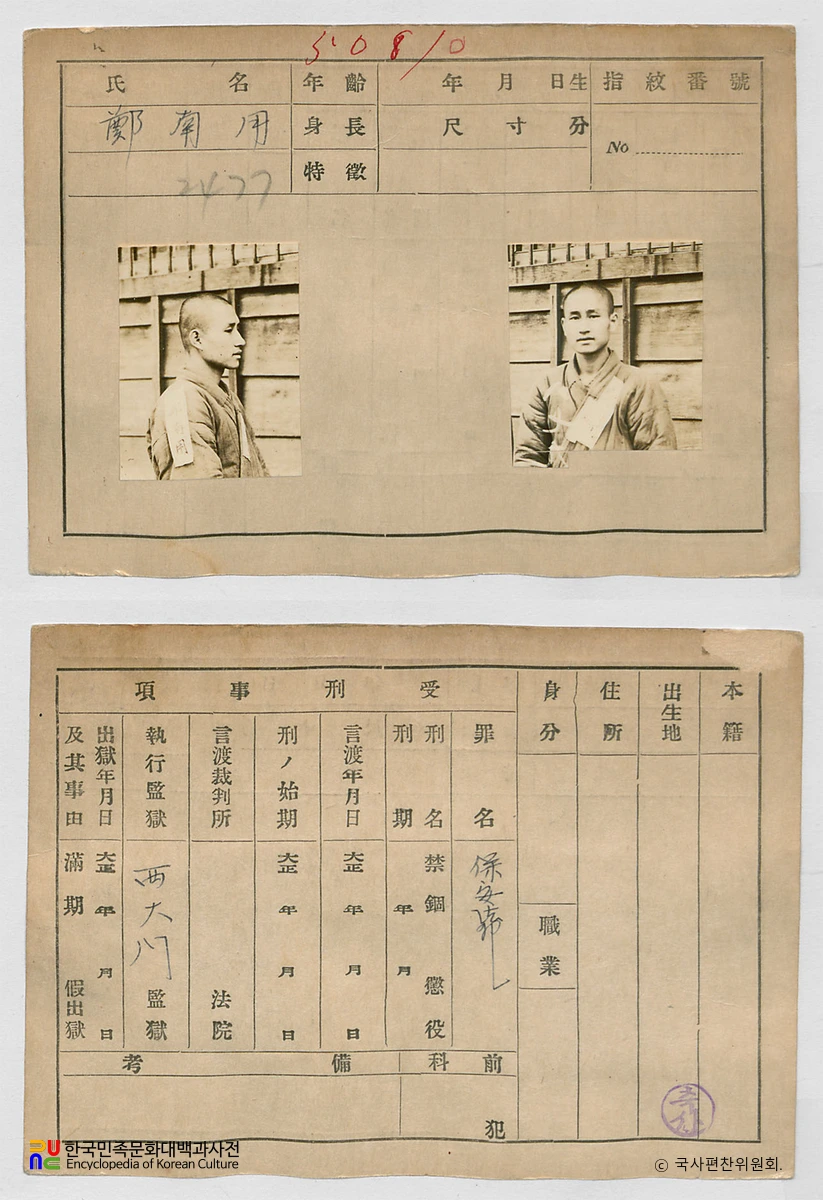 50810
氏名
年齡
年月日生
指紋番號
鄭南用
身長
尺寸分
No
特徵
2477
本籍
出生地
住所
身分
職業
受刑事項
罪名
保安
刑名
禁錮
懲役
刑期
年
月
言渡年月日
大正
年
月
日
刑ノ始期
大正
年
月
日
言渡裁判所
法院
執行監獄
西大門
監獄
出獄年月日
及其事由
大正
年
月
日
滿期
假出獄
前科
犯
備考
한국민족문화대백과사전
Encyclopedia of Korean Culture
© 국사편찬위원회.